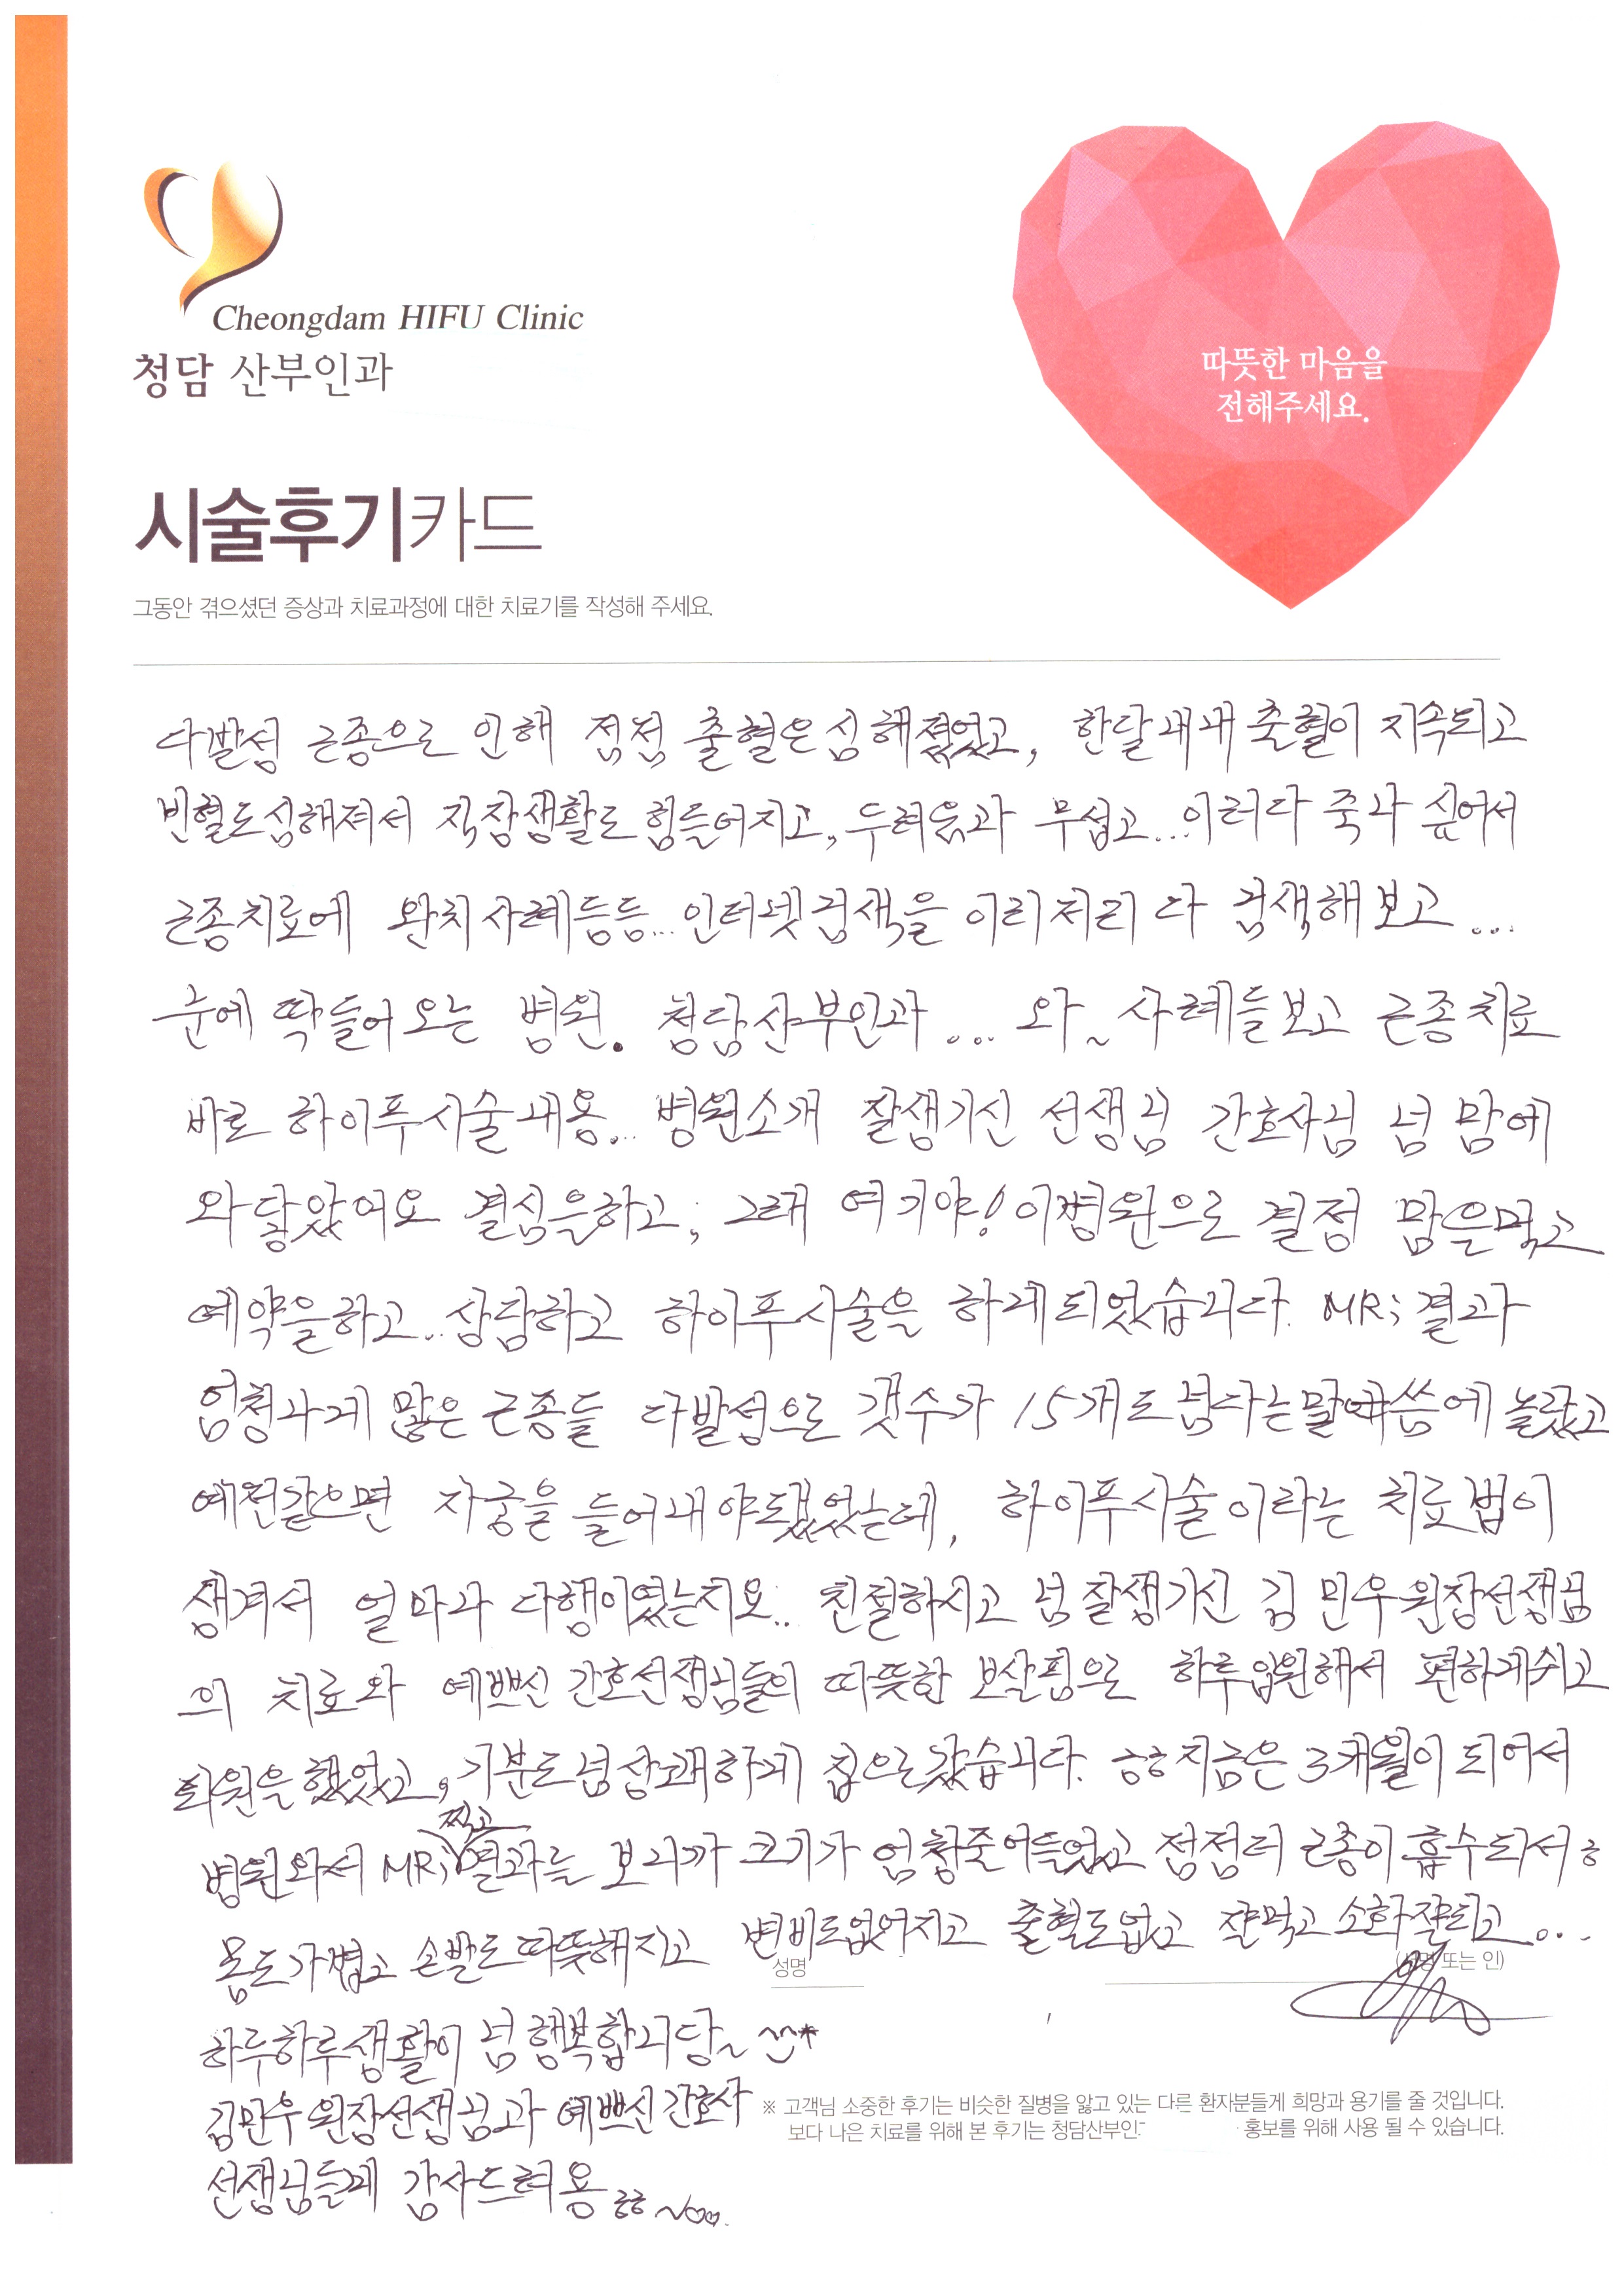 Cheongdam HIFU Clinic
청담 산부인과
따뜻한 마음을
전해주세요.
시술후기카드
그동안 겪으셨던 증상과 치료과정에 대한 치료기를 작성해 주세요.
다발성 근종으로 인해 점점 출혈은 심해졌었고, 한달내내 출혈이 지속되고
빈혈도심해져서 직장생활도 힘들어지고, 두려움과 무섭고...이러다 죽나 싶어서
근종치료에 완치사례등등... 인터넷검색을 이리저리 다 검색해보고...
눈에 딱들어오는 병원. 청담산부인과... 와~ 사례들보고 근종치료
바로 하이푸시술내용... 병원소개 잘생기신 선생님 간호사님 넘 맘에
와닿았어요 결심을하고; 그래 여기야! 이병원으로 결정 맘을먹고
예약을하고.. 상담하고 하이푸시술을 하게되었습니다. MRi 결과
엄청나게 많은 근종들 다발성으로 갯수가 15개도넘다는말씀에 놀랐고
예전같으면 자궁을 들어내야됐었는데, 하이푸시술이라는 치료법이
생겨서 얼마나 다행이였는지요.. 친절하시고 넘잘생기신 김민우원장선생님
의 치료와 예쁘신 간호선생님들의 따뜻한 보살핌으로 하루입원해서 편하게쉬고
퇴원을했었고, 기분도넘상쾌하게 집으로갔습니다. ㅎㅎ지금은 3개월이 되어서
병원와서 MRi찍고 결과를 보니까 크기가 엄청줄어들었고 점점더 근종이흡수되서ㅎ
몸도가볍고 손발도따뜻해지고 변비도없어지고 출혈도없고 잘먹고소화잘되고...
성명
또는 인)
하루하루생활이 넘행복합니당~ ^^*
김민우원장선생님과 예쁘신간호사
선생님들께 감사드려용 ㅎㅎ ~♡♡.
※ 고객님 소중한 후기는 비슷한 질병을 앓고 있는 다른 환자분들게 희망과 용기를 줄 것입니다.
보다 나은 치료를 위해 본 후기는 청담산부인 홍보를 위해 사용 될 수 있습니다.